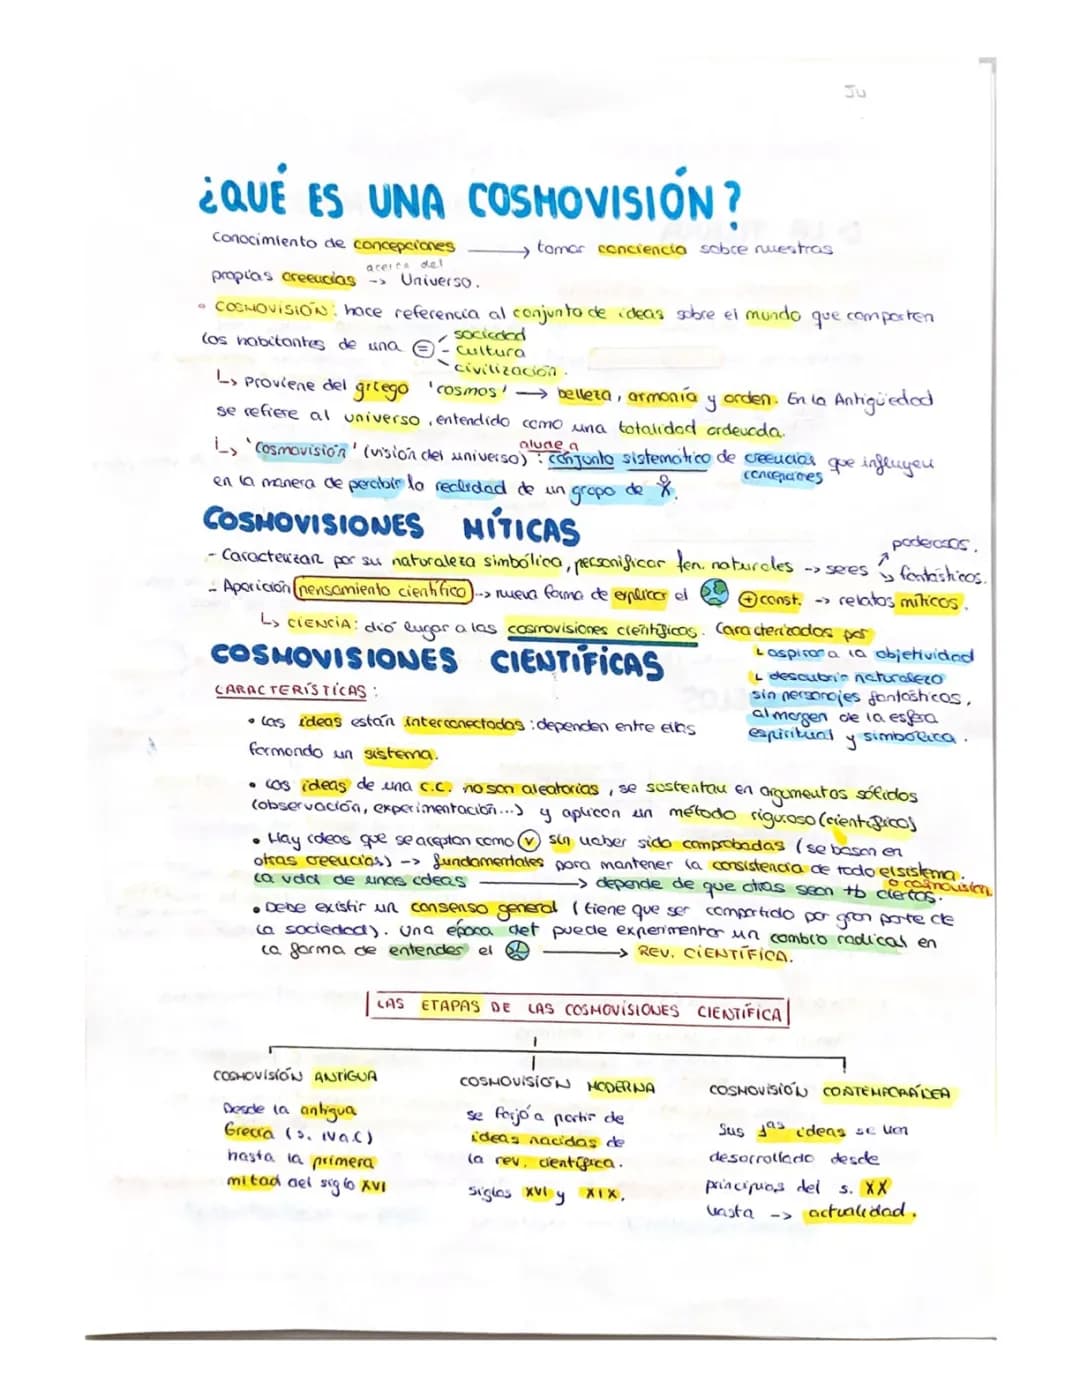 ¿QUÉ ES UNA COSMOVISIÓN?
Conocimiento de concepciones → tomar conciencia sobre nuestras
propias creencias --> acerca del Universo.
• COSMOVISIÓN: hace referencia al conjunto de ideas sobre el mundo que comparten
los habitantes de una = - sociedad
- cultura
- civilización.
↳ Proviene del griego 'cosmos' → belleza, armonía y orden. En la Antigüedad
se refiere al universo, entendido como una totalidad ordenada.
↳ 'Cosmovisión' (visión del universo): alude a conjunto sistemático de creencias que influyen
concepciones
en la manera de percibir la realidad de un grupo de
COSMOVISIONES MÍTICAS
- Caracterizan por su naturaleza simbólica, personificar fen. naturales --> seres
poderosos.
fantásticos.
- Aparición pensamiento científico --> nueva forma de explicar el + const. --> relatos míticos.
↳ CIENCIA: dió lugar a las cosmovisiones científicas. Caracterizadas por
↳ aspirar a la objetividad
↳ descubrir naturaleza
sin personajes fantásticos,
al margen de la esfera
espiritual y simbólica.
COSMOVISIONES CIENTÍFICAS
CARACTERÍSTICAS:
• Las ideas están interconectadas: dependen entre ellas
formando un sistema.
• Los ideas de una c.c. no son aleatorias, se sustentan en argumentos sólidos
(observación, experimentación...) y aplican un método riguroso (científico)
• Hay ideas que se aceptan como V sin haber sido comprobadas (se basan en
otras creencias) --> fundamentales para mantener la consistencia de todo el sistema.
o cosmovisión
La vdad de unas ideas → depende de que otras sean tb ciertas.
• Debe existir un consenso general (tiene que ser compartido por gran parte de
la sociedad). Una época det puede experimentar un cambio radical en
la forma de entender el → REV. CIENTÍFICA.
LAS ETAPAS DE LAS COSMOVISIONES CIENTÍFICA
COSMOVISIÓN ANTIGUA
Desde la antigua
Grecia (s. IV a.C)
hasta la primera
mitad del siglo XVI
COSMOVISIÓN MODERNA
se forjó a partir de
ideas nacidas de
la rev. científica.
Siglos XVI y XIX.
COSMOVISIÓN CONTEMPORÁNEA
Sus 1as ideas se van
desarrollado desde
principios del s. XX
hasta --> actualidad.